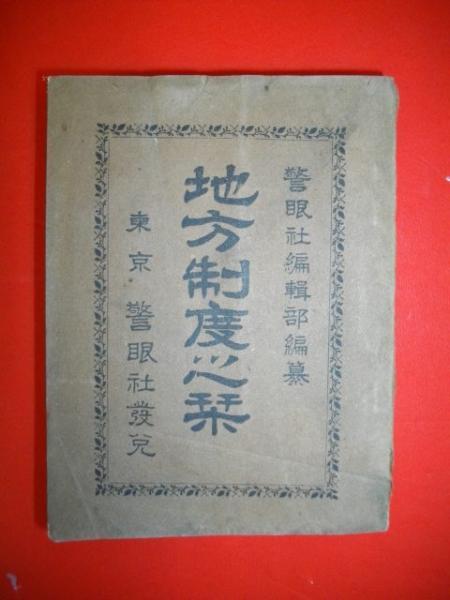 警眼社編輯部編纂
地方制度之栞
東京 警眼社發兌